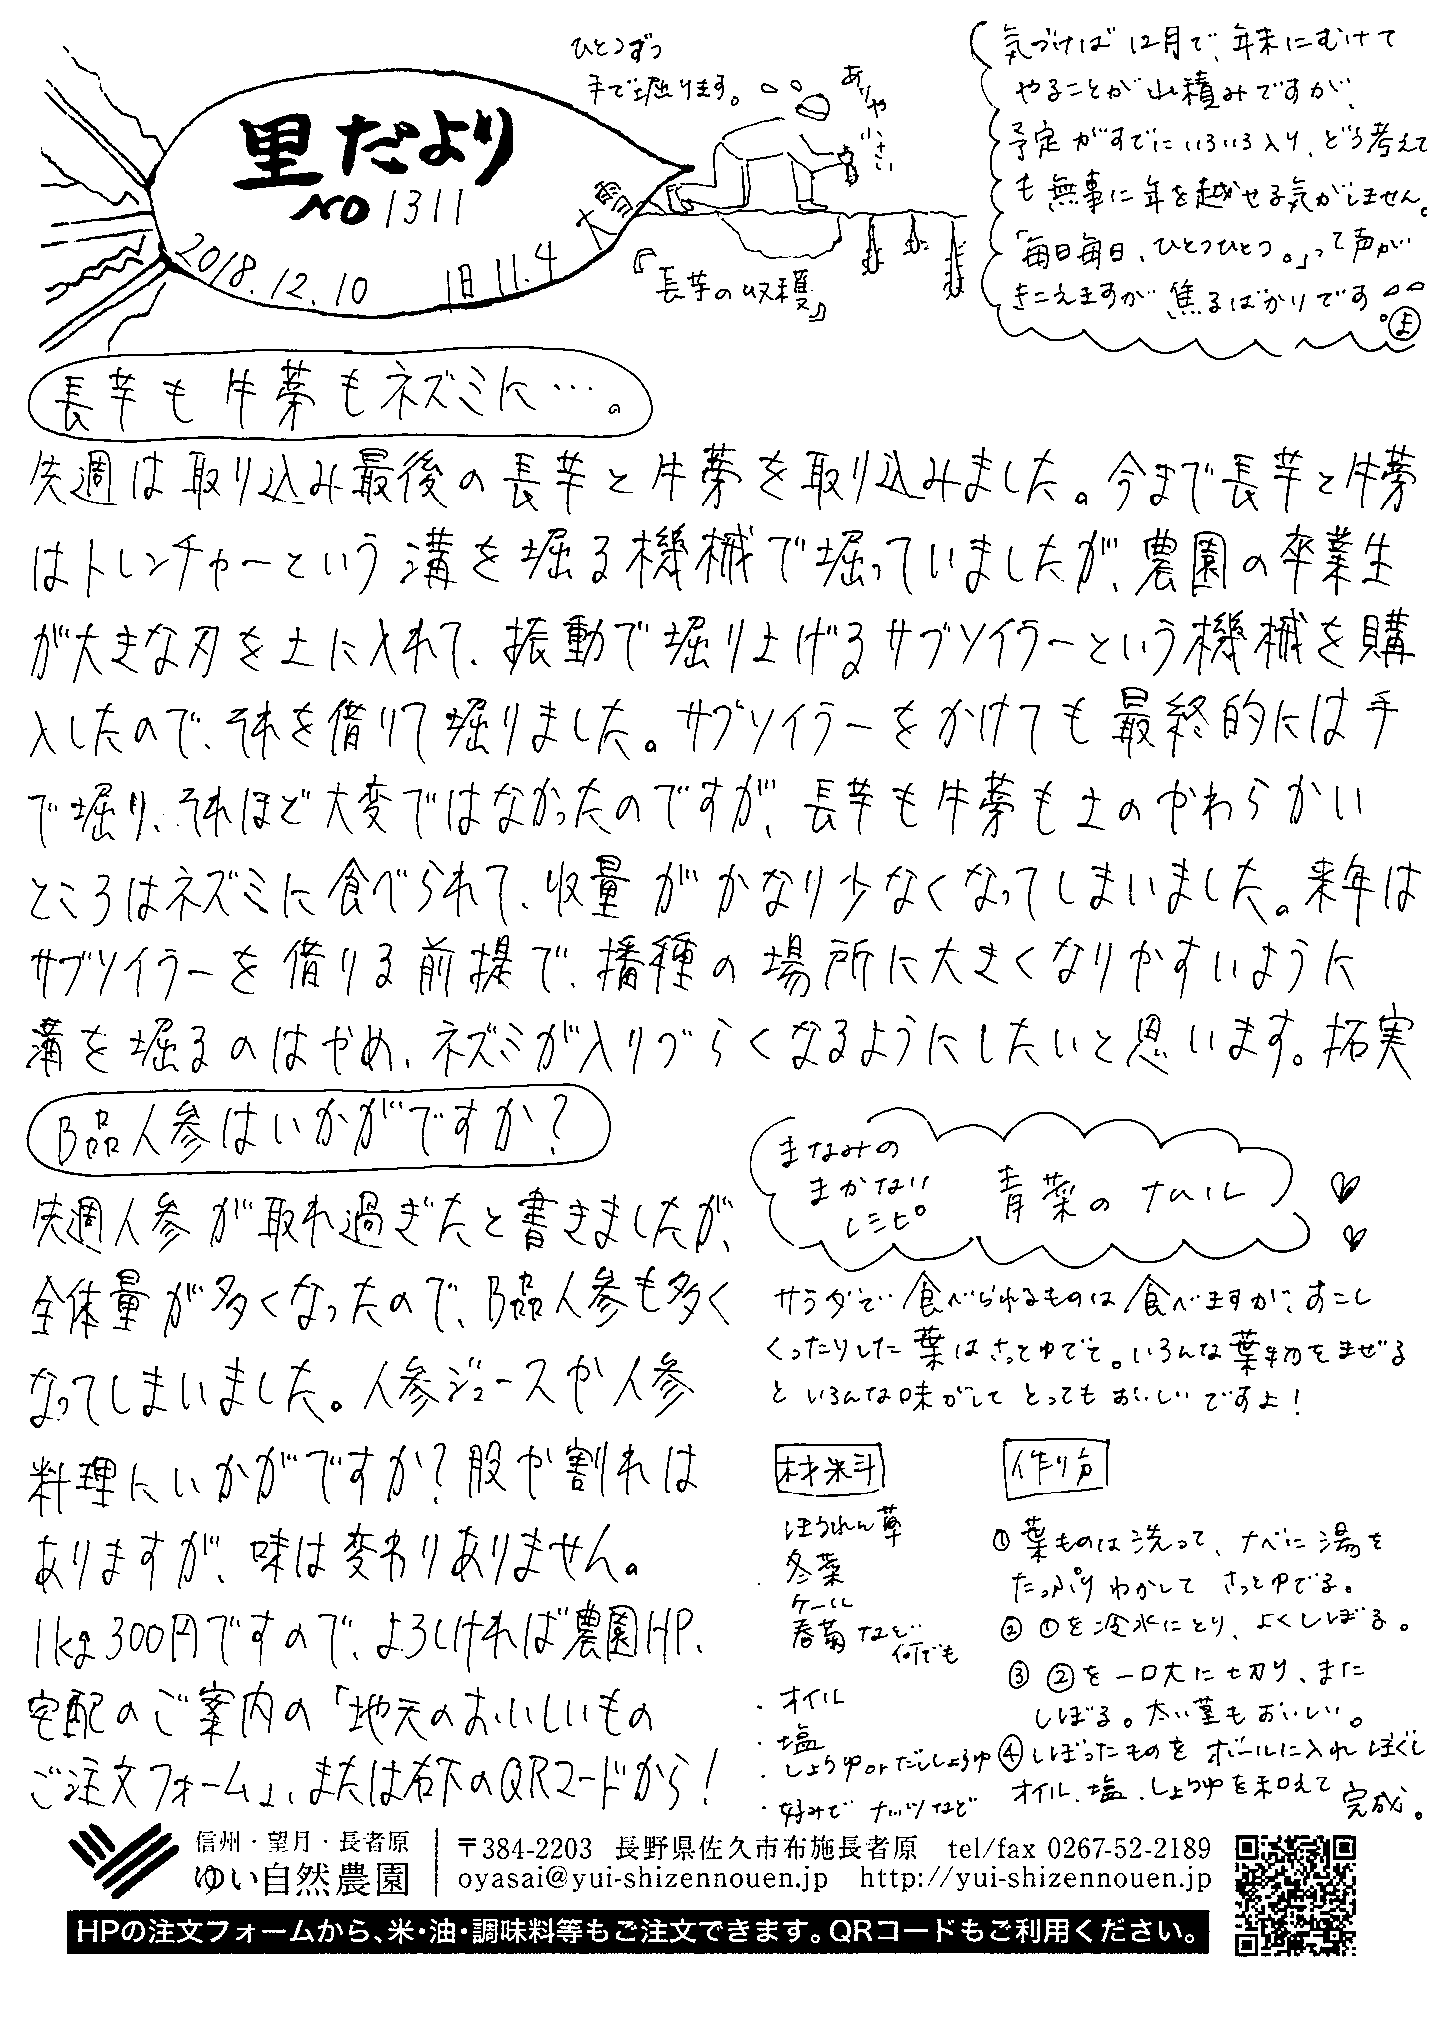 里だより
NO 1311
2018.12.10 旧11.4 大雪
ひとつずつ
手で堀ります。
『長芋の収穫』
気づけば12月で、年末にむけて
やることが山積みですが、
予定がすでにいろいろ入り、どう考えて
も無事に年を越せる気がしません。
「毎日毎日、ひとつひとつ。」って声が
きこえますが焦るばかりです。
よ
長芋も牛蒡もネズミに…。
先週は取り込み最後の長芋と牛蒡を取り込みました。今まで長芋と牛蒡
はトレンチャーという溝を堀る機械で堀っていましたが、農園の卒業生
が大きな刃を土に入れて、振動で堀り上げるサブソイラーという機械を購
入したので、それを借りて堀りました。サブソイラーをかけても最終的には手
で堀り、それほど大変ではなかったのですが、長芋も牛蒡も土のやわらかい
ところはネズミに食べられて、収量がかなり少なくなってしまいました。来年は
サブソイラーを借りる前提で、播種の場所に大きくなりやすいように
溝を堀るのはやめ、ネズミが入りづらくなるようにしたいと思います。拓実
B品人参はいかがですか？
先週人参が取れ過ぎたと書きましたが、
全体量が多くなったので、B品人参も多く
なってしまいました。人参ジュースや人参
料理にいかがですか？股や割れは
ありますが、味は変わりありません。
1kg300円ですので、よろしければ農園HP、
宅配のご案内の「地元のおいしいもの
ご注文フォーム」、または右下のQRコードから！
まなみの
まかない
レシピ
青菜のナムル
サラダで食べられるものは食べますが、すこし
くったりした葉はさっとゆでて。いろんな葉物をまぜる
といろんな味がしてとってもおいしいですよ！
材料
ほうれん草
・冬菜
ケール
春菊など
何でも
・オイル
・塩
・しょうゆorだししょうゆ
・好みでナッツなど
作り方
①葉ものは洗って、ナベに湯を
たっぷりわかしてさっとゆでる。
②①を冷水にとり、よくしぼる。
③②を一口大に切り、また
しぼる。太い茎もおいしい。
④しぼったものをボールに入れほぐし
オイル、塩、しょうゆを和えて完成。
信州・望月・長者原
ゆい自然農園
〒384-2203 長野県佐久市布施長者原 tel/fax 0267-52-2189
oyasai@yui-shizennouen.jp http://yui-shizennouen.jp
HPの注文フォームから、米・油・調味料等もご注文できます。QRコードもご利用ください。